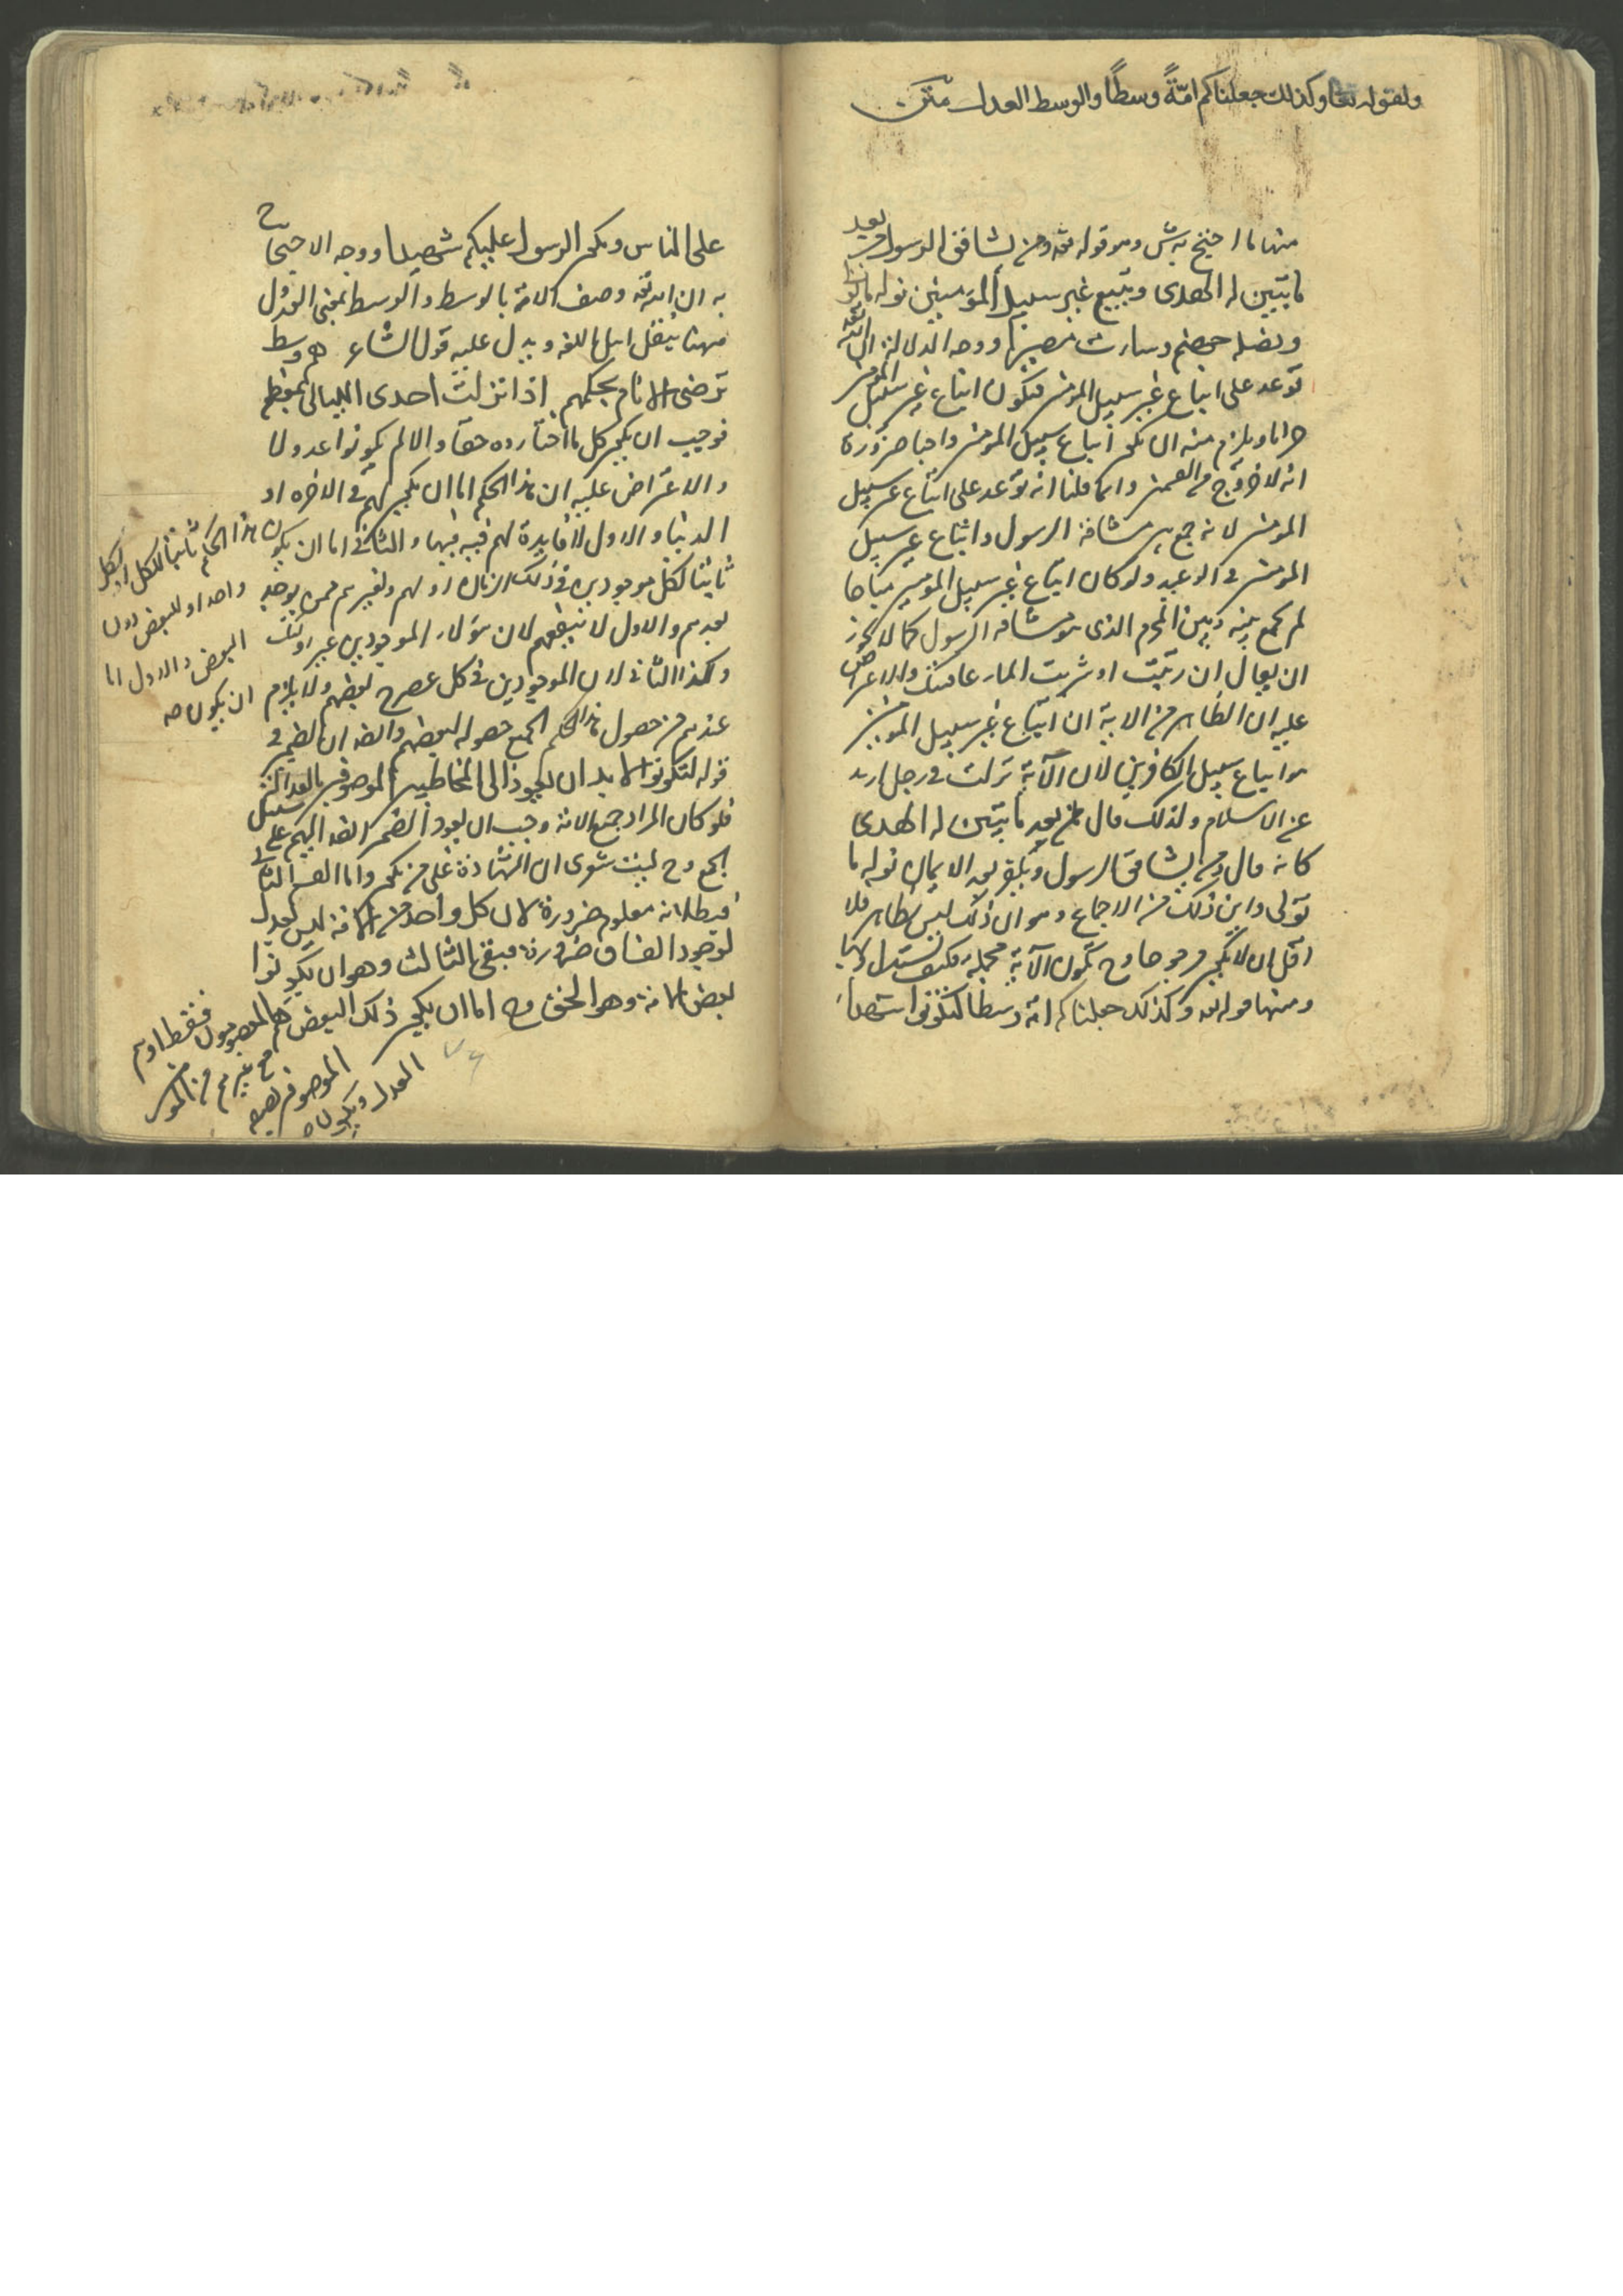 ولقوله تعا وكذلك جعلناكم امّةً وسطًا والوسط العدل
منها ما احتج به ش وهو قوله تعه ومن يشاقق الرسول من بعد
ما تبيّن له الهدى ويتبع غير سبيل المؤمنين نوله ما تولى
ونصله جهنم وساءت مصيرا ووجه الدلالة ان الله تعه
توعد على اتباع غير سبيل المومنين فيكون اتباع غير سبيل المومنين
حراما ويلزم منه ان يكون اتباع سبيل المومنين واجبا ضرورة
انه لا خروج من القسمين وانما قلنا انه توعد على اتباع غير سبيل
المومنين لانه جمع بين مشاقة الرسول واتباع غير سبيل
المومنين في الوعيد ولو كان اتباع غير سبيل المومنين مباحا
لم يجمع بينه وبين المحرم الذى هو مشاقة الرسول كما لا يجوز
ان يقال ان زنيت او شربت الماء عاقبتك والاعتراض
عليه ان الظاهر من الاية ان اتباع غير سبيل المومنين
هو اتباع سبيل الكافرين لان الآية نزلت في رجل ارتد
عن الاسلام ولذلك قال من بعد ما تبيّن له الهدى
كانه قال ومن يشاقق الرسول ويكفر بعد الايمان نوله ما
تولى واين ذلك من الاجماع وهو ان ذلك ليس بظاهر فلا
اقل ان لا يكون مرجوحا وح تكون الآية مجملة فكيف تستدل بها
ومنها قوله تعه وكذلك جعلناكم امة وسطا لتكونوا شهداء
على الناس ويكون الرسول عليكم شهيدا ووجه الاحتجاج
به ان الله تعه وصف الامة بالوسط والوسط بمعنى العدل
ههنا بنقل اهل اللغة ويدل عليه قول الشاعر هم وسط
ترضى الانام بحكمهم اذا نزلت احدى الليالى بمعظم
فوجب ان يكون كل ما اختاروه حقا والا لم يكونوا عدولا
والاعتراض عليه ان هذا الحكم اما ان يكون لهم في الاخرة او
الدنيا والاول لا فايدة لهم فيه فيها والثانى اما ان يكون هذا الحكم ثابتا للكل او لكل
واحد او للبعض دون
البعض والاول اما
ان يكون
ثابتا لكل موجودين في ذلك الزمان او لهم ولغيرهم ممن يوجد
بعدهم والاول لا ينفعهم لان هؤلاء الموجودين غير اولئك
وكذا الثانى لان الموجودين في كل عصر ح بعضهم ولا يلزم
عندهم من حصول هذا الحكم للجميع حصوله لبعضهم وايضا ان الضمير في
قوله لتكونوا لا بد ان يعود الى المخاطبين الموصوفين بالعدالة
فلو كان المراد جميع الامة وجب ان يعود الضمير ايضا اليهم على سبيل
الجمع وح ليت شعرى ان الشهادة على من يكون واما القسم الثانى
فبطلانه معلوم ضرورة لان كل واحد من الامة ليس بعدل
لوجود الفساق ضرورة فبقى الثالث وهو ان يكونوا
بعض الامة وهو الحق وح اما ان يكون ذلك البعض هم المعصومون فقط او هم
مع غيرهم من المومنين
الموصوفين بصفة
العدل ويكون